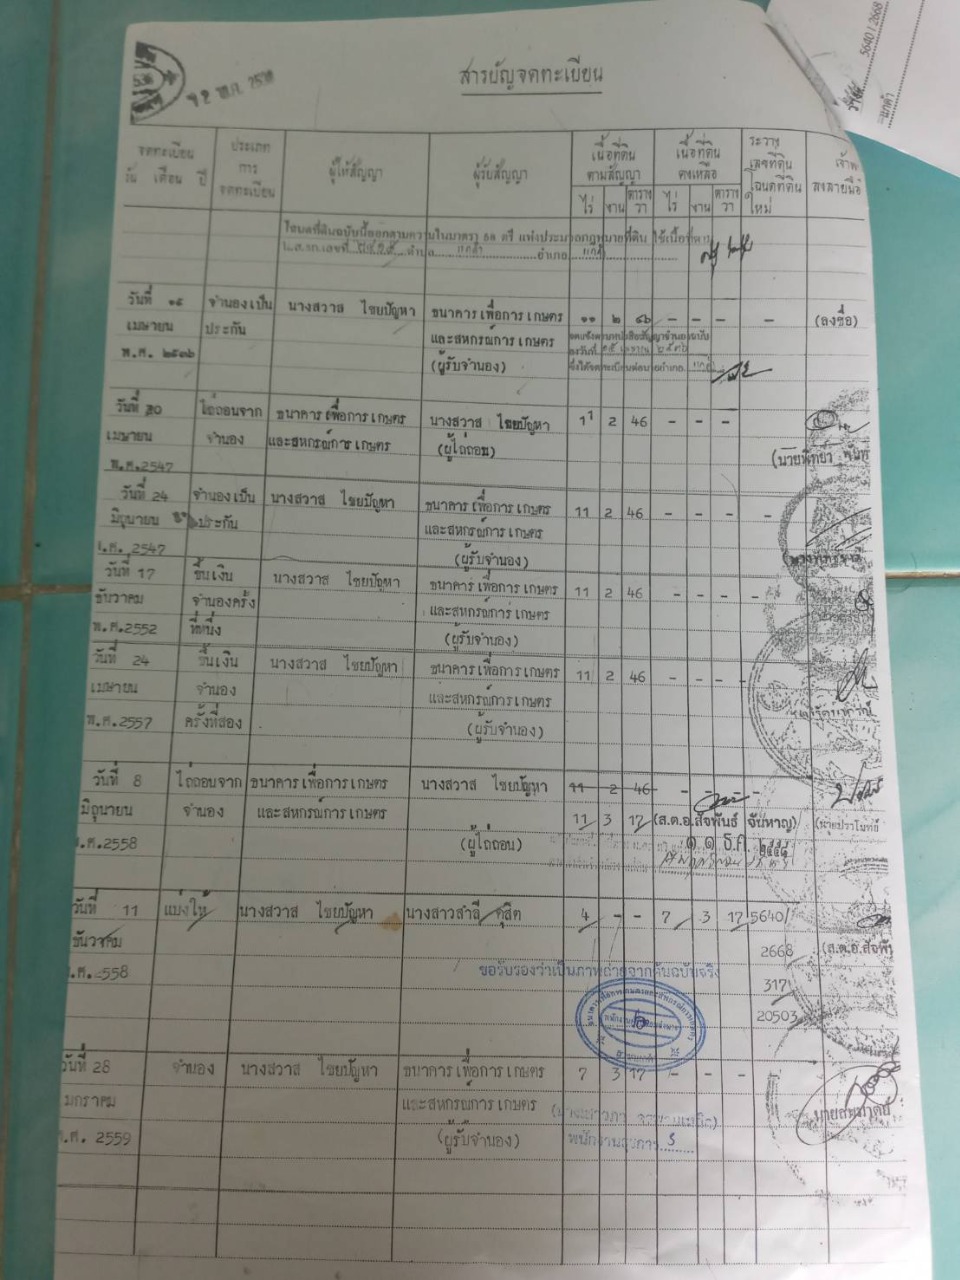 5640 / 2668
สารบัญจดทะเบียน
จดทะเบียน
วัน เดือน ปี
ประเภท
การ
จดทะเบียน
ผู้ให้สัญญา
ผู้รับสัญญา
เนื้อที่ดิน
ตามสัญญา
ไร่ งาน ตารางวา
เนื้อที่ดิน
คงเหลือ
ไร่ งาน ตารางวา
ระวาง
เลขที่ดิน
โฉนดที่ดิน
ใหม่
ลงลายมือ
โฉนดที่ดินฉบับนี้ออกตามความในมาตรา ๕๘ ตรี แห่งประมวลกฎหมายที่ดิน ใช้เนื้อที่
น.ส.๓ก.เลขที่ ตำบล แกดำ อำเภอ แกดำ
วันที่ ๑๕ จำนองเป็น นางสวาส ไขยปัญหา ธนาคารเพื่อการเกษตร ๑๑ ๒ ๔๖ – – – – (ลงชื่อ)
เมษายน ประกัน และสหกรณ์การเกษตร
พ.ศ. ๒๕๓๖ (ผู้รับจำนอง)
วันที่ 20 ไถ่ถอนจาก ธนาคารเพื่อการเกษตร นางสวาส ไขยปัญหา 11 2 46 – – –
เมษายน จำนอง และสหกรณ์การเกษตร (ผู้ไถ่ถอน)
พ.ศ.2547
วันที่ 24 จำนองเป็น นางสวาส ไขยปัญหา ธนาคารเพื่อการเกษตร 11 2 46 – – – –
มิถุนายน ประกัน และสหกรณ์การเกษตร
พ.ศ. 2547 (ผู้รับจำนอง)
วันที่ 17 ขึ้นเงิน นางสวาส ไขยปัญหา ธนาคารเพื่อการเกษตร 11 2 46 – – – –
ธันวาคม จำนองครั้ง และสหกรณ์การเกษตร
พ.ศ.2552 ที่หนึ่ง (ผู้รับจำนอง)
วันที่ 24 ขึ้นเงิน นางสวาส ไขยปัญหา ธนาคารเพื่อการเกษตร 11 2 46 – – – –
เมษายน จำนอง และสหกรณ์การเกษตร
พ.ศ.2557 ครั้งที่สอง (ผู้รับจำนอง)
วันที่ 8 ไถ่ถอนจาก ธนาคารเพื่อการเกษตร นางสวาส ไขยปัญหา 11 2 46 – – –
มิถุนายน จำนอง และสหกรณ์การเกษตร 11 3 17 (ส.ต.อ.สัจพันธ์ จันหาญ) (นายปราโมทย์
.ศ.2558 (ผู้ไถ่ถอน) ๑ ๑ ธ.ค. ๒๕๕๘
วันที่ 11 แบ่งให้ นางสวาส ไขยปัญหา นางสาวสำลี ดุสิต 4 – – 7 3 17 5640/
ธันวาคม 2668 (ส.ต.อ.สัจพั
.ศ. 2558 ขอรับรองว่าเป็นภาพถ่ายจากต้นฉบับจริง 317
20503
วันที่ 28 จำนอง นางสวาส ไขยปัญหา ธนาคารเพื่อการเกษตร 7 3 17 – – – –
มกราคม และสหกรณ์การเกษตร
.ศ. 2559 (ผู้รับจำนอง) พนักงานธุรการ 5